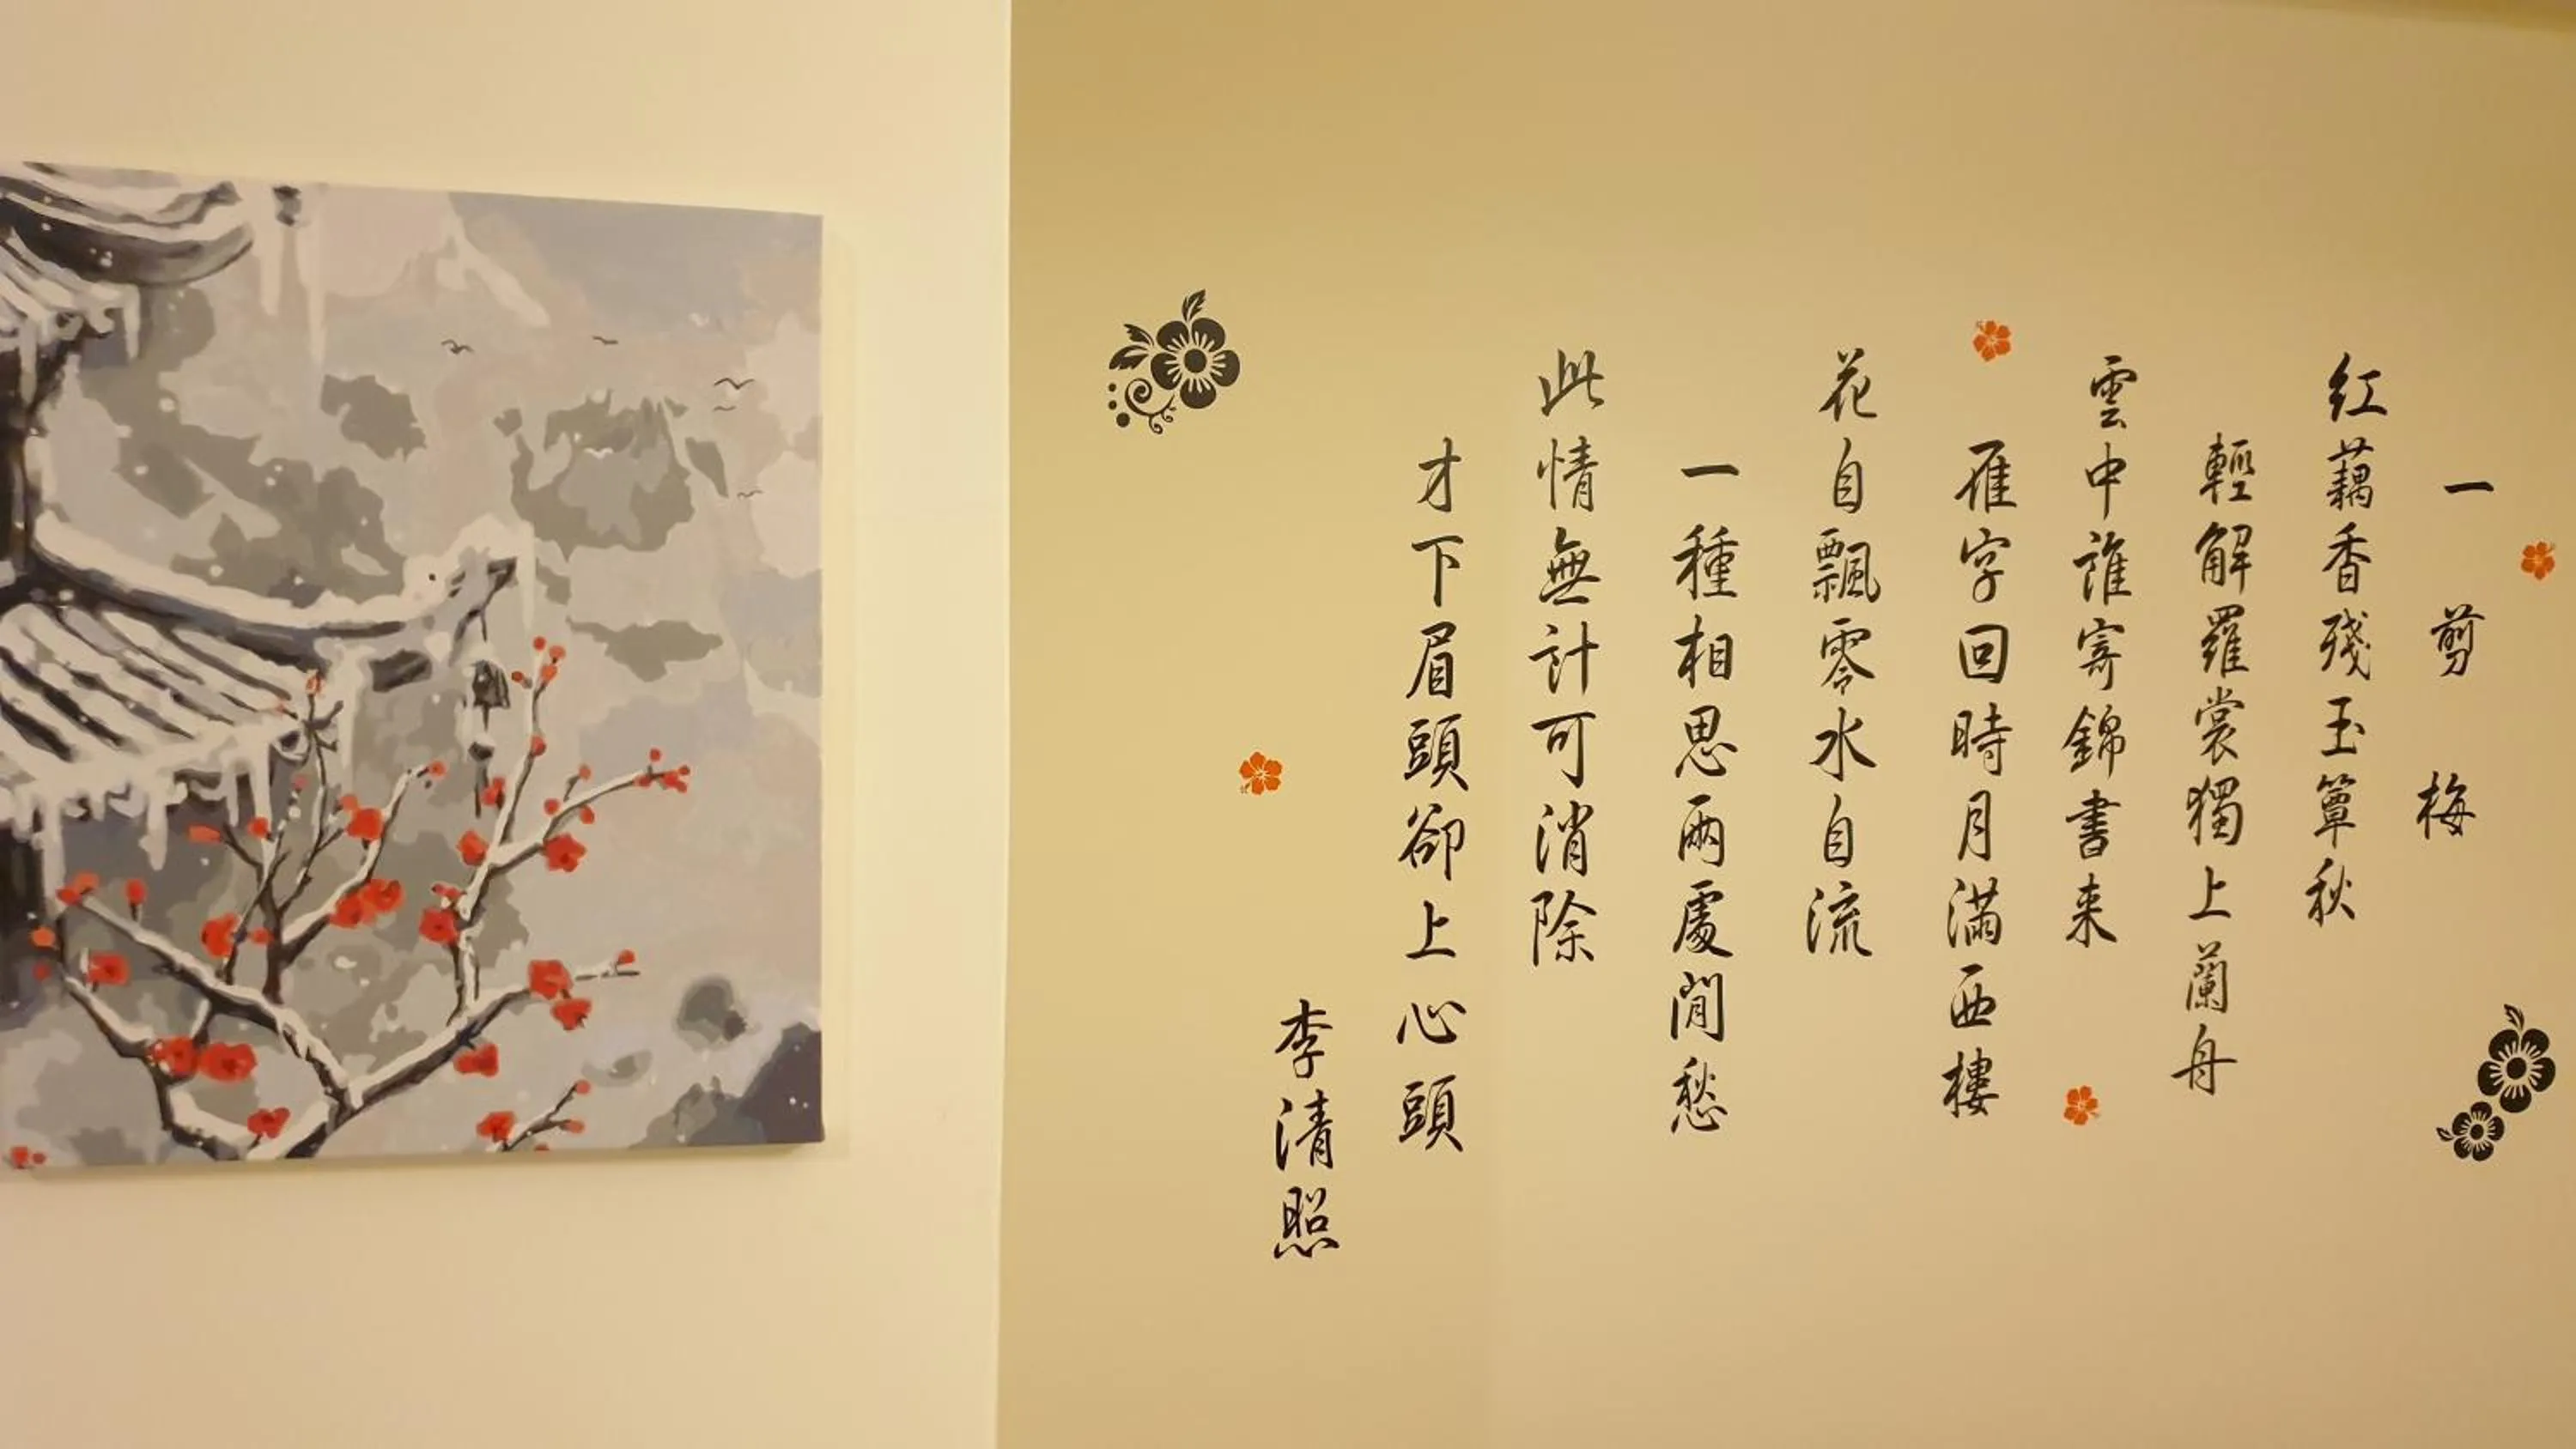 一剪梅
红藕香殘玉簟秋
輕解羅裳獨上蘭舟
雲中誰寄錦書来
雁字回時月滿西樓
花自飄零水自流
一種相思兩處閒愁
此情無計可消除
才下眉頭卻上心頭
李清照